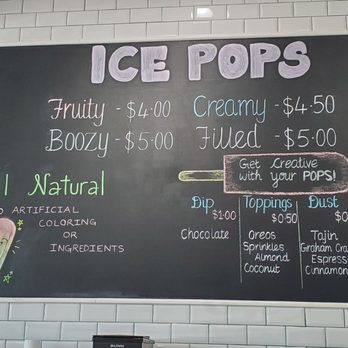 ICE POPS
Fruity - $4.00 Creamy - $4.50
Boozy - $5.00 Filled - $5.00
Get Creative
with your POPS!
Natural
ARTIFICIAL
COLORING
OR
INGREDIENTS
Dip Toppings Dust
$1.00 $0.50
Chocolate
Oreos
Sprinkles
Almond
Coconut
Tajin
Graham
Espress
Cinnamon